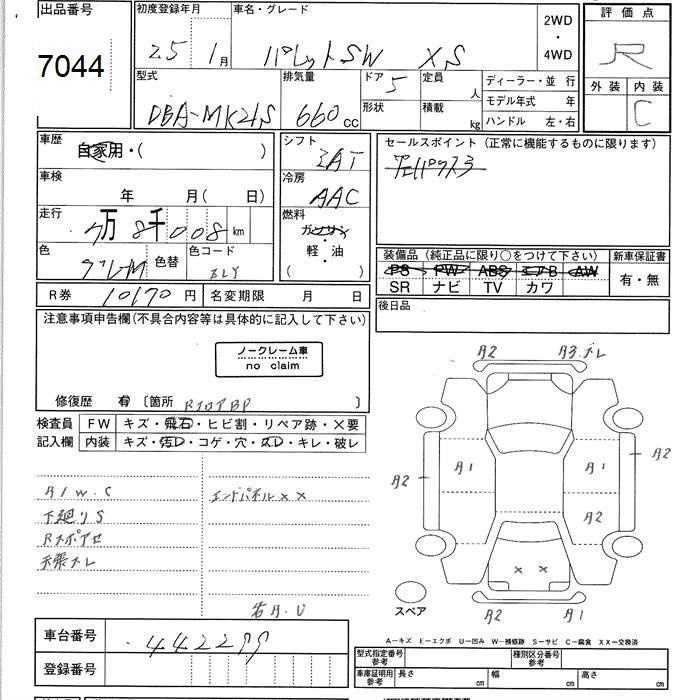 出品番号 初度登録年月 車名・グレード 2WD・4WD 評価点
7044 25年1月 パレットSW XS R
型式 排気量 ドア 5 定員 人 ディーラー・並行 外装 内装
DBA-MK21S 660cc 形状 積載 kg モデル年式 年 C
ハンドル 左・右
車歴 自家用・( ) シフト セールスポイント（正常に機能するものに限ります）
車検 年 月( 日) 冷房 AAC
走行 7万8千008km 燃料 ガソリン・軽・油 ( )
色 色替 色コード 装備品（純正品に限り○をつけて下さい） 新車保証書
PS PW ABS エアB AW 有・無
SR ナビ TV カワ
R券 10170円 名変期限 月 日 後日品
注意事項申告欄(不具合内容等は具体的に記入して下さい)
ノークレーム車
no claim
修復歴 有 〔箇所 RフロアBP 〕
検査員 FW キズ・飛石・ヒビ割・リペア跡・×要
記入欄 内装 キズ・汚レ・コゲ・穴・スレ・キレ・破レ
A2 A3.ズレ
A2 A1 A1 A2
A2
A/W.C エンドパネル××
下廻りS
天張ズレ
× ×
A2 A1
スペア
A－キズ E－エクボ U－凹み W－補修跡 S－サビ C－腐食 XX－交換済
車台番号 442299
登録番号
型式指定番号 参考 種別区分番号 参考
車庫証明用 参考 長さ cm 幅 cm 高さ cm